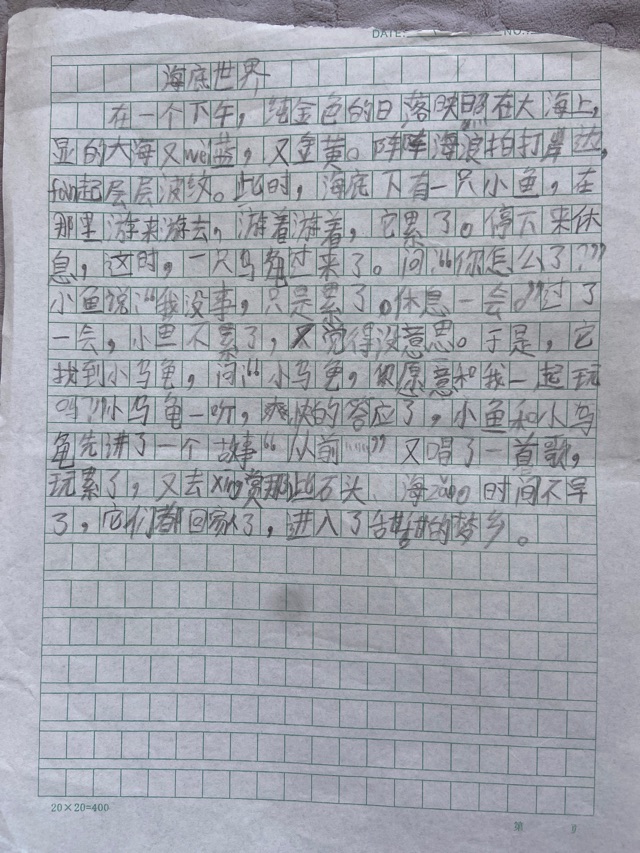 DATE: NO.
海底世界
在一个下午，纯金色的日落映照在大海上，
显的大海又wèi蓝，又金黄。阵阵海浪拍打岸边，
fān起层层波纹。此时，海底下有一只小鱼，在
那里游来游去，游着游着，它累了。停下来休
息，这时，一只乌龟过来了。问：“你怎么了？”
小鱼说：“我没事，只是累了。休息一会。”过了
一会，小鱼不累了，又觉得没意思。于是，它
找到小乌龟，问：“小乌龟，你愿意和我一起玩
吗？”小乌龟一听，爽快的答应了，小鱼和小乌
龟先讲了一个故事“从前……”又唱了一首歌，
玩累了，又去xīng赏那些石头、海zǎo。时间不早
了，它们都回家了，进入了甜甜的梦乡。
20×20=400
第 页